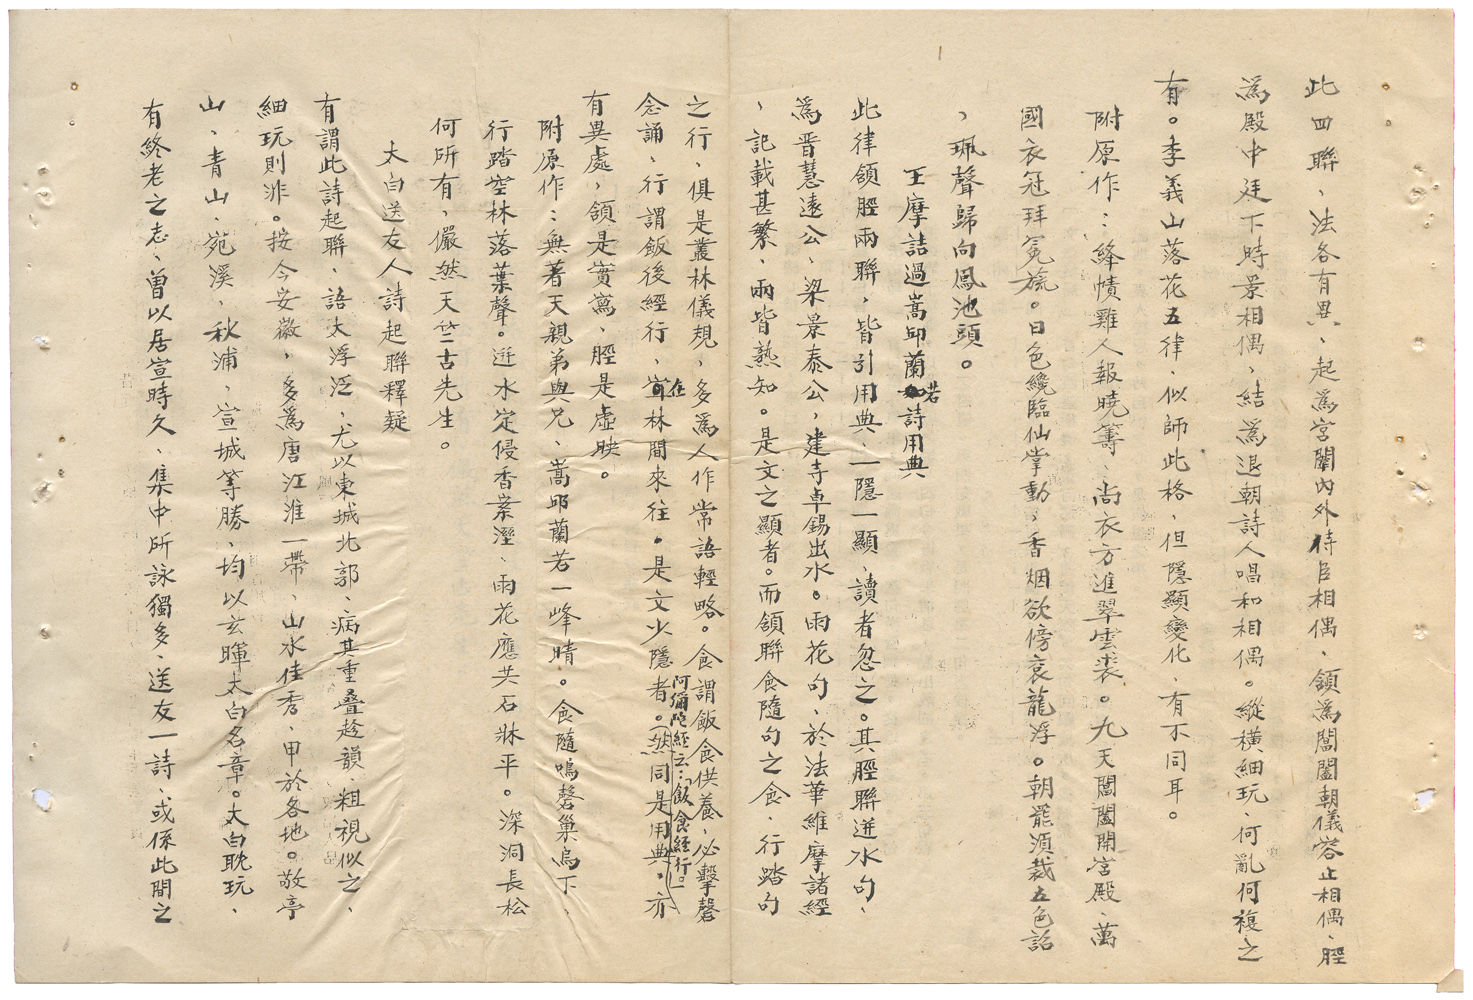 此四聯、法各有異、起為宮闈內外待臣相偶、頷為閶闔朝儀容止相偶、脛
為殿中廷下時景相偶、結為退朝詩人唱和相偶。縱橫細玩、何亂何複之
有。李義山落花五律、似師此格、但隱顯變化、有不同耳。
附原作：絳幘雞人報曉籌、尚衣方進翠雲裘。九天閶闔開宮殿、萬
國衣冠拜冕旒。日色纔臨仙掌動、香烟欲傍袞龍浮。朝罷須裁五色詔
、珮聲歸向鳳池頭。
王摩詰過嵩邱蘭若詩用典
此律頷脛兩聯，皆引用典、一隱一顯、讀者忽之。其脛聯迸水句、
為晋慧遠公、梁景泰公，建寺卓錫出水。雨花句、於法華維摩諸經
、記載甚繁、兩皆熟知。是文之顯者。而頷聯食隨句之食、行踏句
之行、俱是叢林儀規、多為人作常語輕略。食謂飯食供養、必擊磬
念誦、行謂飯後經行、在林間來往。是文少隱者。（然同是用典、亦
阿彌陀經云：「飯食經行。」
有異處，頷是實寫、脛是虛映。
附原作：無著天親弟與兄、嵩邱蘭若一峰晴。食隨鳴磬巢烏下、
行踏空林落葉聲。迸水定侵香案溼、雨花應共石牀平。深洞長松
何所有，儼然天竺古先生。
太白送友人詩起聯釋疑
有謂此詩起聯、語太浮泛、尤以東城北郭、病其重疊趁韻、粗視似之、
細玩則非。按今安徽、多為唐江淮一帶、山水佳秀、甲於各地。敬亭
山、青山、宛溪、秋浦、宣城等勝、均以玄暉太白名章。太白耽玩、
有終老之志、曽以居宣時久、集中所詠獨多、送友一詩、或係此間之